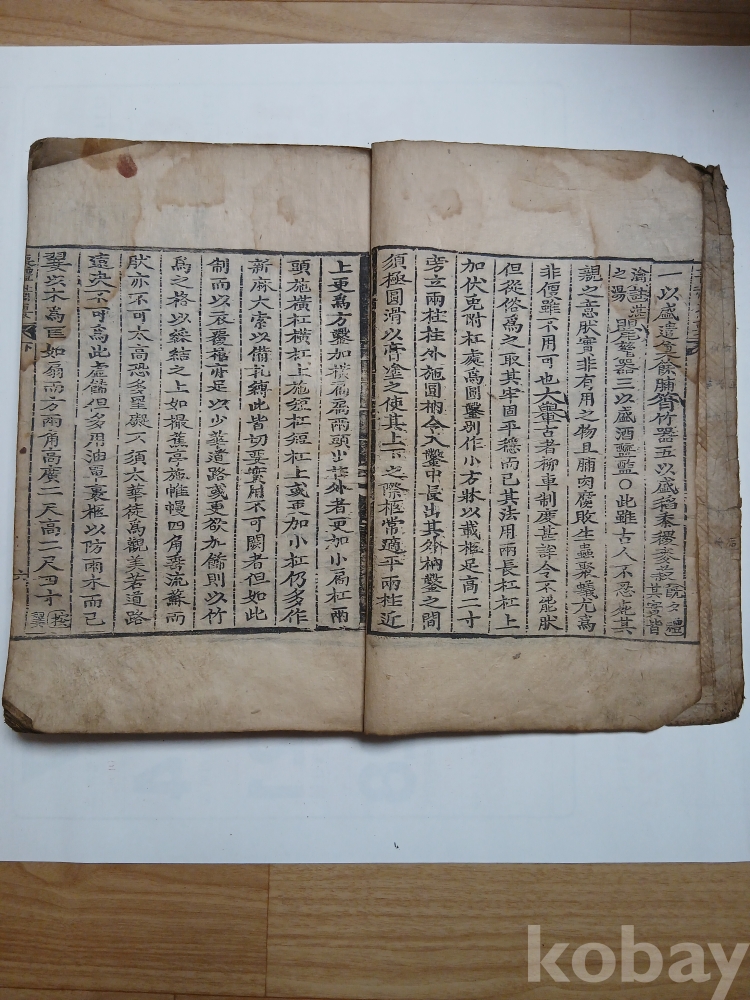 一以盛遣奠餘脯筲竹器五以盛稻黍稷麥菽旣夕禮其實皆
瀹註淹之湯甖磁器三以盛酒醯醢〇此雖古人不忍死其
親之意狀實非有用之物且脯肉腐敗生蟲聚蟻尤爲
非便雖不用可也大轝古者柳車制度甚詳今不能狀
但從俗爲之取其牢固平穩而已其法用兩長杠杠上
加伏兎附杠處爲圓鑿別作小方牀以載柩足高二寸
旁立兩柱柱外施圓枘令入鑿中長出其外枘鑿之間
須極圓滑以膏塗之使其上下之際柩常適平兩柱近
上更爲方鑿加橫扃扃兩頭出柱外者更加小扃杠兩
頭施橫杠橫杠上施短杠短杠上或更加小杠仍多作
新麻大索以備扎縛此皆切要實用不可闕者但如此
制而以衣覆棺亦足以少華道路或更欲加飾則以竹
爲之格以綵結之上如撮蕉亭施帷幔四角垂流蘇而
狀亦不可太高恐多罣礙不須太華徒爲觀美若道路
遠決不可爲此虛飾但多用油單裹柩以防雨水而已
翣以木爲匡如扇而方兩角高廣二尺高二尺四寸
喪禮備要 下 六
kobay